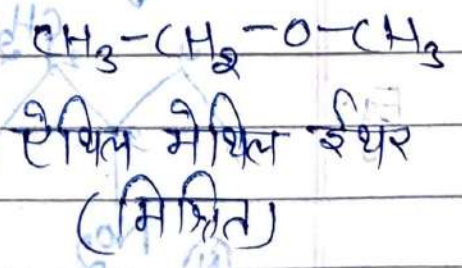 CH₃-CH₂-O-CH₃
ऐथिल मेथिल ईथर
(मिश्रित)